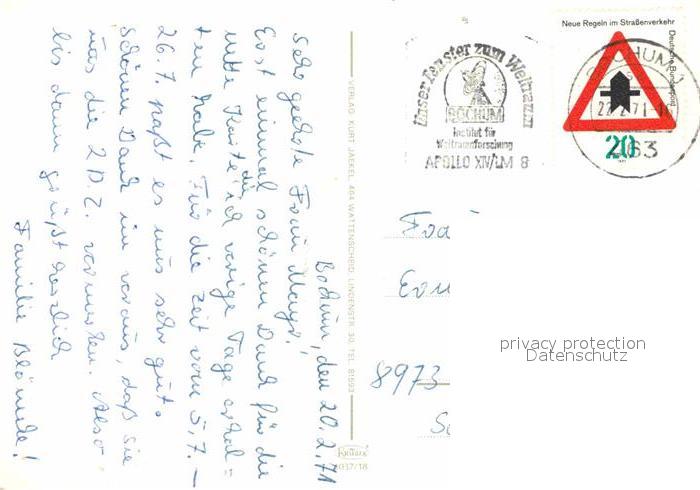 Bochum, den 20.2.71
Sehr geehrte Frau Mayr!
Erst einmal schönen Dank für die
nette Karte, die ich vorige Tage erhal=
ten habe. Für die Zeit vom 5.7. –
26.7. paßt es uns sehr gut.
Schönen Dank im voraus, daß Sie
uns die 2 D.Z. vormerken. Also
bis dann grüßt herzlich
Familie
VERLAG KURT JAEKEL 464 WATTENSCHEID LINGENSTR. 30, TEL. 81593
KRÜGER
037/18
Unser Fenster zum Weltraum
BOCHUM
Institut für
Weltraumforschung
APOLLO XIV/LM 8
Neue Regeln im Straßenverkehr
Deutsche Bundespost
20
BOCHUM
463
8973
privacy protection
Datenschutz